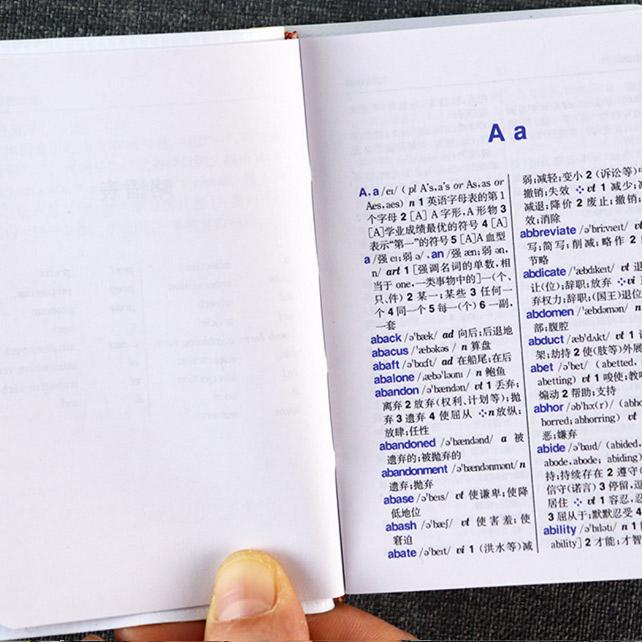 A a
A, a /eɪ/ ( pl A's, a's or As, as or
Aes, aes) n 1 英语字母表的第1
个字母 2 [A] A字形,A形物 3
[A]学业成绩最优的符号 4 [A]
表示“第一”的符号 5 [A]A血型
a /强 eɪ;弱 ə/ , an /强 æn; 弱 ən,
n/ art 1 [强调名词的单数,相
当于 one,一类事物中的]一(个、
只、件) 2 某一;某些 3 任何一
个 4 同一个 5 每一(个) 6 一副,
一套
aback /ə'bæk/ ad 向后;后退地
abacus /'æbəkəs / n 算盘
abaft /ə'bɑːft/ ad 在船尾;在后
abalone /ˌæbə'ləʊnɪ / n 鲍鱼
abandon /ə'bændən/ vt 1 丢弃;
离弃 2 放弃(权利、计划等);抛
弃 3 遗弃 4 使屈从 ❖n 放纵;
放肆;任性
abandoned /ə'bændənd/ a 被
遗弃的;被抛弃的
abandonment /ə'bændənmənt/ n
遗弃;抛弃
abase /ə'beɪs/ vt 使谦卑;使降
低地位
abash /ə'bæʃ/ vt 使害羞;使
窘迫
abate /ə'beɪt/ vi 1 (洪水等)减
弱;减轻;变小 2 (诉讼等)中
撤销;失效 ❖vt 1 减少;减
减退;降价 2 废止;撤销;
效;消除
abbreviate /ə'briːvieɪt/ vt
写;简写;削减;略作 2
节略
abdicate /'æbdɪkeɪt/ vt 退
让(位);辞职;放弃 ❖vi
弃权力;辞职;(国王)退位
abdomen /'æbdəmən/ n
部;腹腔
abduct /æb'dʌkt/ vt 1
架;劫持 2 使(肢等)外展
abet /ə'bet/ (abetted,
abetting) vt 1 唆使;教唆
煽动 2 帮助;支持
abhor /əb'hɔː(r)/ (abho
horred; abhorring) vt
恶;嫌弃
abide /ə'baɪd/ (abided,
abode, abode; abiding)
持;持续存在 2 遵守
信守(诺言) 3 停留,逗
居住 ❖vt 1 容忍,忍
3 屈从于;默默忍受 4
ability /ə'bɪlətɪ/ n 1
ability] 2 才能;才智